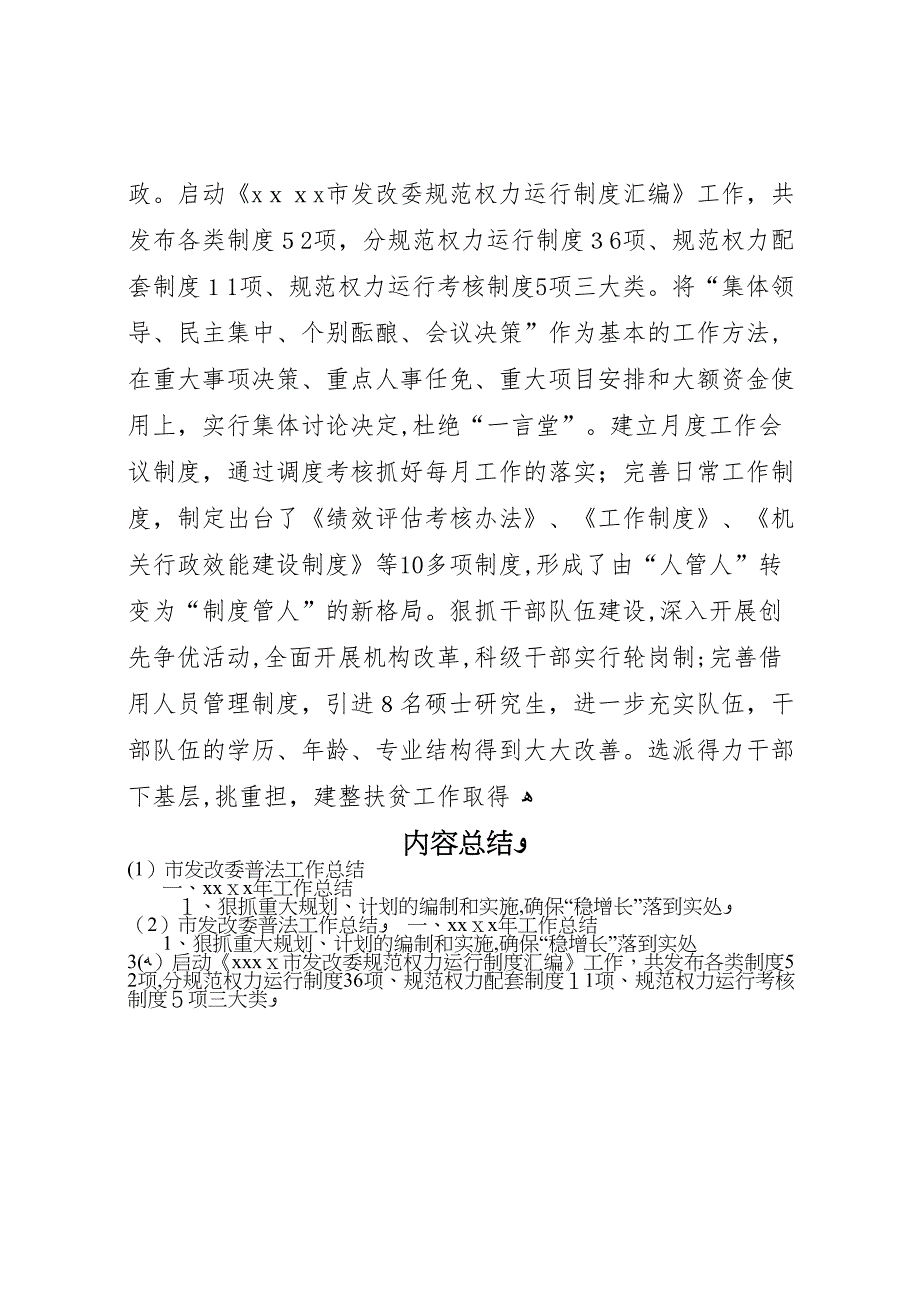 政。启动《xｘ ｘx市发改委规范权力运行制度汇编》工作，共
发布各类制度５2项，分规范权力运行制度３6项、规范权力配
套制度１1项、规范权力运行考核制度5项三大类。将“集体领
导、民主集中、个别酝酿、会议决策”作为基本的工作方法，
在重大事项决策、重点人事任免、重大项目安排和大额资金使
用上，实行集体讨论决定,杜绝“一言堂”。建立月度工作会
议制度，通过调度考核抓好每月工作的落实；完善日常工作制
度，制定出台了《绩效评估考核办法》、《工作制度》、《机
关行政效能建设制度》等10多项制度,形成了由“人管人”转
变为“制度管人”的新格局。狠抓干部队伍建设,深入开展创
先争优活动,全面开展机构改革,科级干部实行轮岗制;完善借
用人员管理制度，引进８名硕士研究生，进一步充实队伍，干
部队伍的学历、年龄、专业结构得到大大改善。选派得力干部
下基层,挑重担，建整扶贫工作取得 ﻫ
内容总结و
(1）市发改委普法工作总结
一、xxｘx年工作总结
１、狠抓重大规划、计划的编制和实施,确保“稳增长”落到实处و
（2）市发改委普法工作总结و 一、xxｘx年工作总结
1、狠抓重大规划、计划的编制和实施,确保“稳增长”落到实处
3(ﻪ）启动《xxxｘ市发改委规范权力运行制度汇编》工作，共发布各类制度5
2项,分规范权力运行制度36项、规范权力配套制度１1项、规范权力运行考核
制度５项三大类و